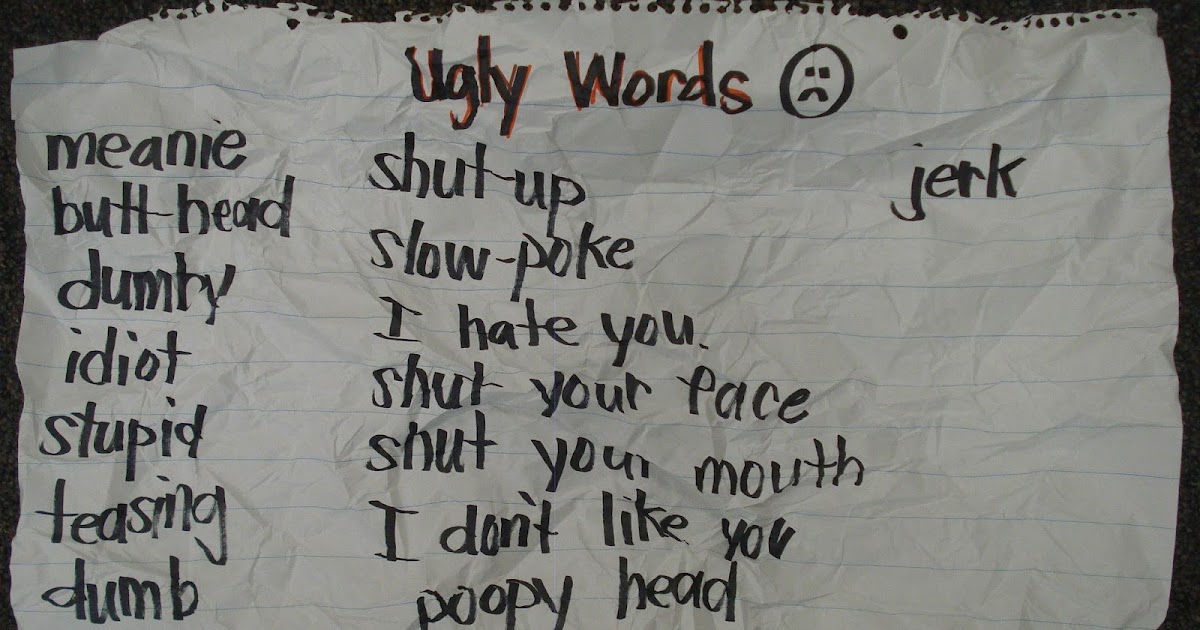 Ugly Words
meanie
butt-head
dumby
idiot
stupid
teasing
dumb
shut-up
slow-poke
I hate you.
shut your face
shut your mouth
I don't like you
poopy head
jerk